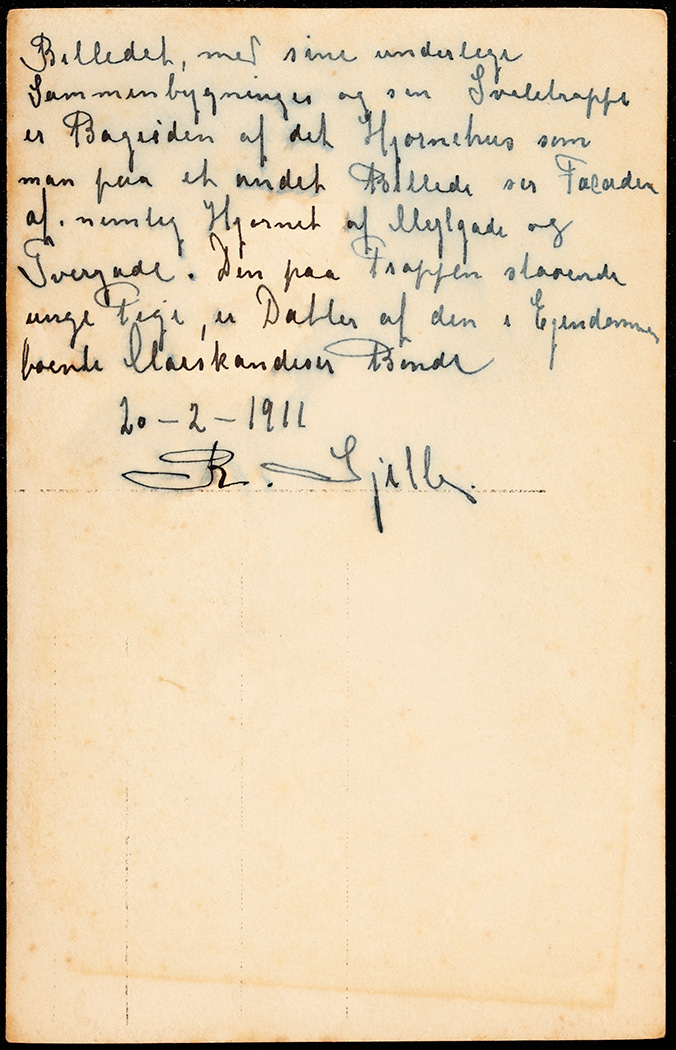 Billedet, med sine underlige
Sammenbygninger og sin Svaletrappe
er Bagsiden af det Hjørnehus som
man paa et andet Billede ser Facaden
af. nemlig Hjørnet af Mejlgade og
Tvergade. Den paa Trappen staaende
unge Pige, er Datter af den i Ejendommen
boende Marskandiser Bonde
20-2-1911
R.